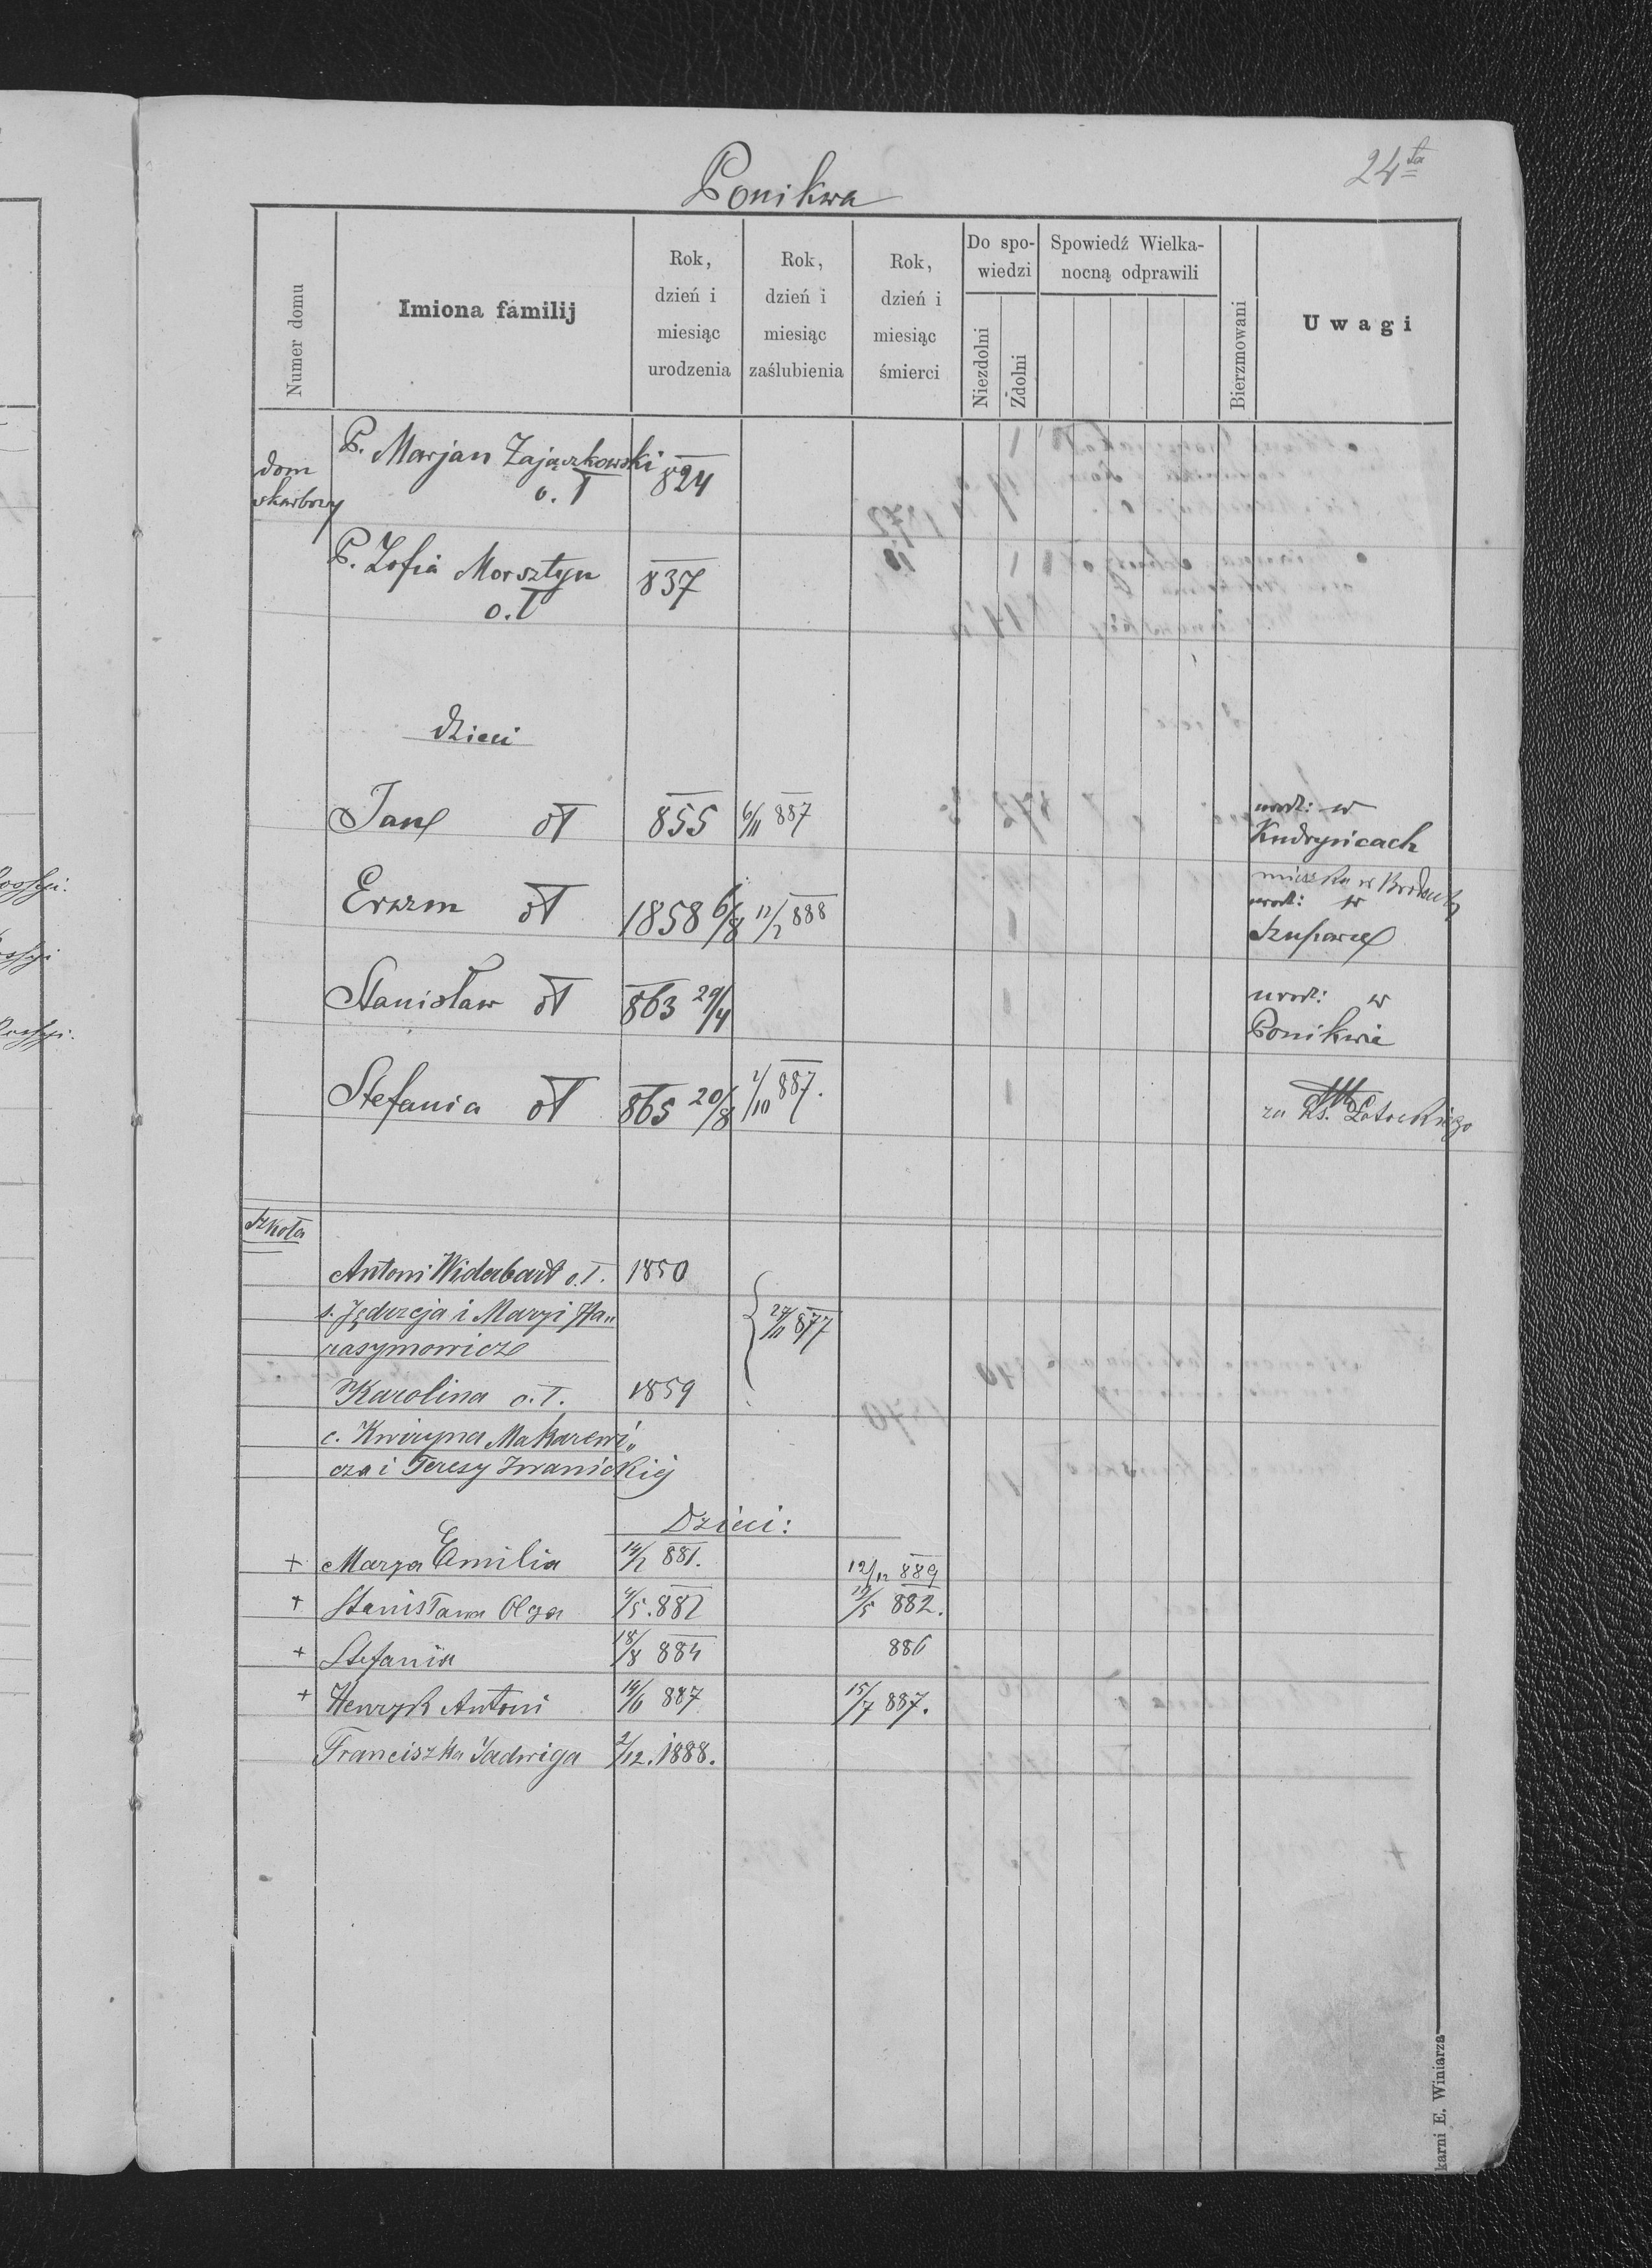 24ta
Ponikwa
Numer domu
Imiona familij
Rok,
dzień i
miesiąc
urodzenia
Rok,
dzień i
miesiąc
zaślubienia
Rok,
dzień i
miesiąc
śmierci
Do spo-
wiedzi
Niezdolni
Zdolni
Spowiedź Wielka-
nocną odprawili
Bierzmowani
Uwagi
dom
skarbowy
P. Marjan Zajączkowski 824
o. T
P. Zofia Morsztyn 837
o. T
Dzieci
Jan oT 855 6/11 887 urodz: w
Kudryńcach
mieszka w
Erazm oT 1858 6/8 12/2 888 urodz: w
Stanisław oT 863 29/4 urodz: w
Ponikwie
Stefania oT 865 20/8 2/10 887.
za Ks.
Szkoła
Antoni o. T. 1850
s. Jędrzeja i Maryi Ha„
rasymowicz
27/11 877
Karolina o. T. 1859
c. Kwiryna Makarewi„
cza i Teresy Iwanickiej
Dzieci:
+ Marya Emilia 14/2 881. 12/12 889
+ Stanisława Olga 4/5. 882 19/5 882.
+ Stefania 18/8 884 886
+ Henryk Antoni 14/6 887 15/7 887.
Franciszka Jadwiga 2/12. 1888.
karni E. Winiarza